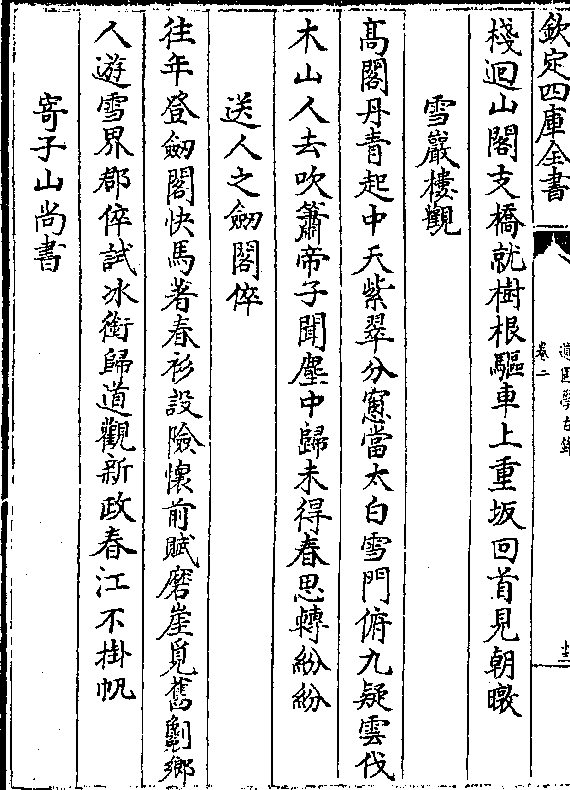 欽定四庫全書
道園學古錄
卷二
十三
棧迴山閣支橋就樹根驅車上重坂回首見朝暾
雪巖樓觀
髙閣丹青起中天紫翠分窻當太白雪門俯九疑雲伐
木山人去吹簫帝子聞塵中歸未得春思轉紛紛
送人之劒閣倅
往年登劒閣快馬著春衫設險懐前賦磨崖覓舊劖鄉
人遊雪界郡倅試冰銜歸道觀新政春江不掛帆
寄子山尚書